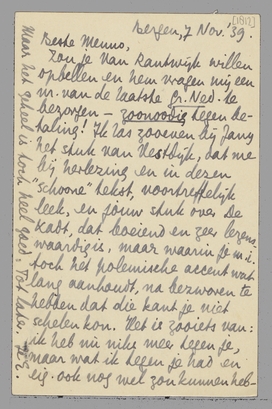 [1812]
Bergen, 7 Nov. '39.
Beste Menno,
Zou je Van Kantwijk willen
opbellen en hem vragen mij een
nr. van de laatste Gr. Ned. te
bezorgen – zoonoodig tegen be-
taling! Ik las zooeven bij Jany
het stuk van Vestdijk, dat me
bij herlezing en in dezen
"schoone" tekst, voortreffelijk
leek, en jouw stuk over De
Kadt, dat boeiend en zeer lezens-
waardig is, maar waarin je m.i.
toch het polemische accent wat
lang aanhoudt, na bezworen te
hebben dat die kant je niet
schelen kon. Het is zooiets van:
ik heb nu niks meer tegen je,
maar wat ik tegen je had en
eig. ook nog wel zou kunnen heb-
Maar het geheel is toch heel goed. Tot later. je E.